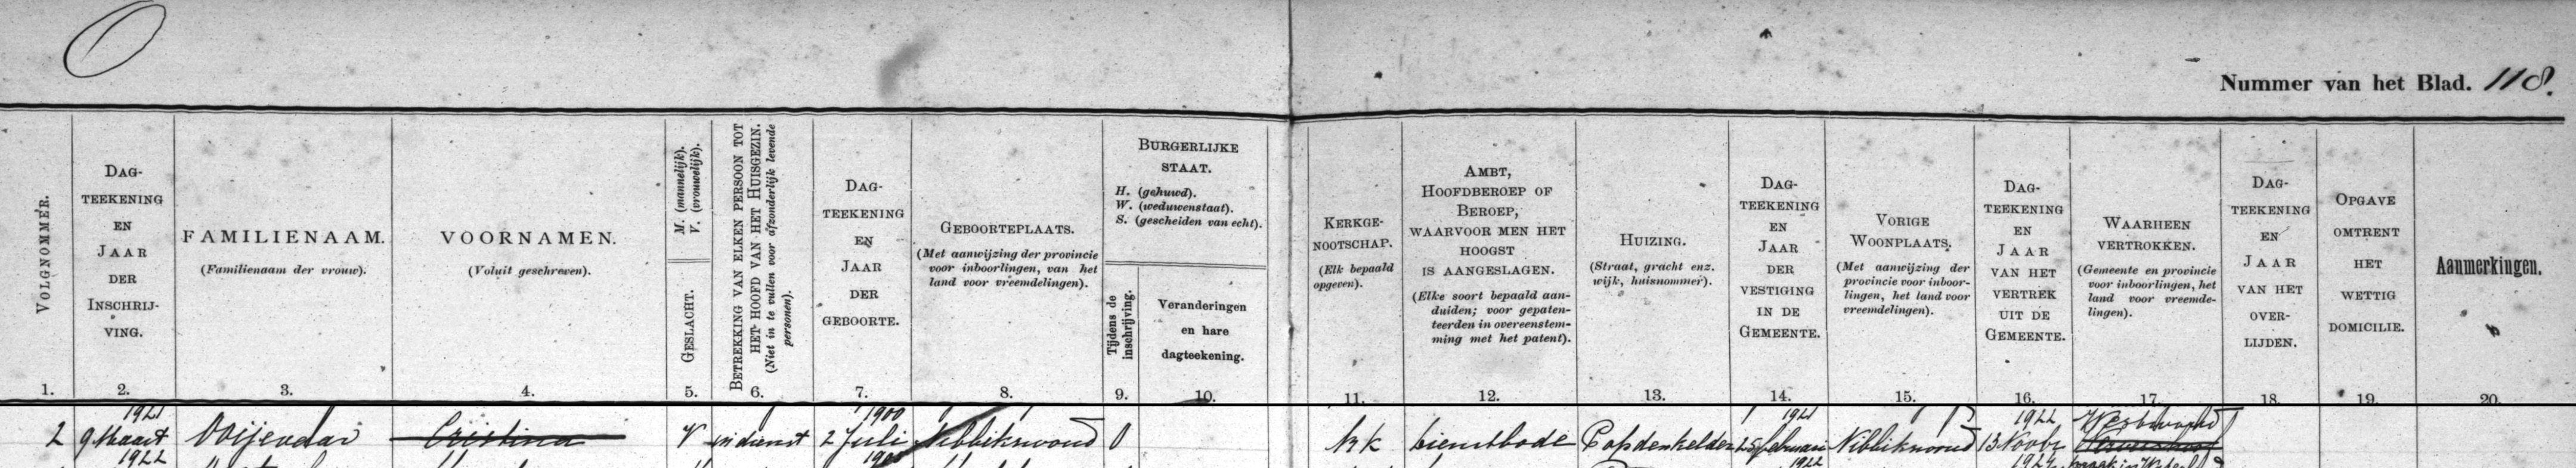 O
Nummer van het Blad. 118.
VOLGNOMMER.
1.
DAG-
TEEKENING
EN
JAAR
DER
INSCHRIJ-
VING.
2.
FAMILIENAAM.
(Familienaam der vrouw).
3.
VOORNAMEN.
(Voluit geschreven).
4.
M. (mannelijk).
V. (vrouwelijk).
GESLACHT.
5.
BETREKKING VAN ELKEN PERSOON TOT
HET HOOFD VAN HET HUISGEZIN.
(Niet in te vullen voor afzonderlijk levende
personen).
6.
DAG-
TEEKENING
EN
JAAR
DER
GEBOORTE.
7.
GEBOORTEPLAATS.
(Met aanwijzing der provincie
voor inboorlingen, van het
land voor vreemdelingen).
8.
BURGERLIJKE
STAAT.
H. (gehuwd).
W. (weduwenstaat).
S. (gescheiden van echt).
Tijdens de
inschrijving.
9.
Veranderingen
en hare
dagteekening.
10.
KERKGE-
NOOTSCHAP.
(Elk bepaald
opgeven).
11.
AMBT,
HOOFDBEROEP OF
BEROEP,
WAARVOOR MEN HET
HOOGST
IS AANGESLAGEN.
(Elke soort bepaald aan-
duiden; voor gepaten-
teerden in overeenstem-
ming met het patent).
12.
HUIZING.
(Straat, gracht enz.
wijk, huisnommer).
13.
DAG-
TEEKENING
EN
JAAR
DER
VESTIGING
IN DE
GEMEENTE.
14.
VORIGE
WOONPLAATS.
(Met aanwijzing der
provincie voor inboor-
lingen, het land voor
vreemdelingen).
15.
DAG-
TEEKENING
EN
JAAR
VAN HET
VERTREK
UIT DE
GEMEENTE.
16.
WAARHEEN
VERTROKKEN.
(Gemeente en provincie
voor inboorlingen, het
land voor vreemde-
lingen).
17.
DAG-
TEEKENING
EN
JAAR
VAN HET
OVER-
LIJDEN.
18.
OPGAVE
OMTRENT
HET
WETTIG
DOMICILIE.
19.
Aanmerkingen.
20.
1921 1900 1921 1922 Westwoud
2 9 Maart Ooijevaar Cristina V in dienst 2 Juli Nibbikwoud O RK dienstbode Cafdenkelder 25 februari Nibbikwoud 13 Novbr
1922 1900 1922 1922